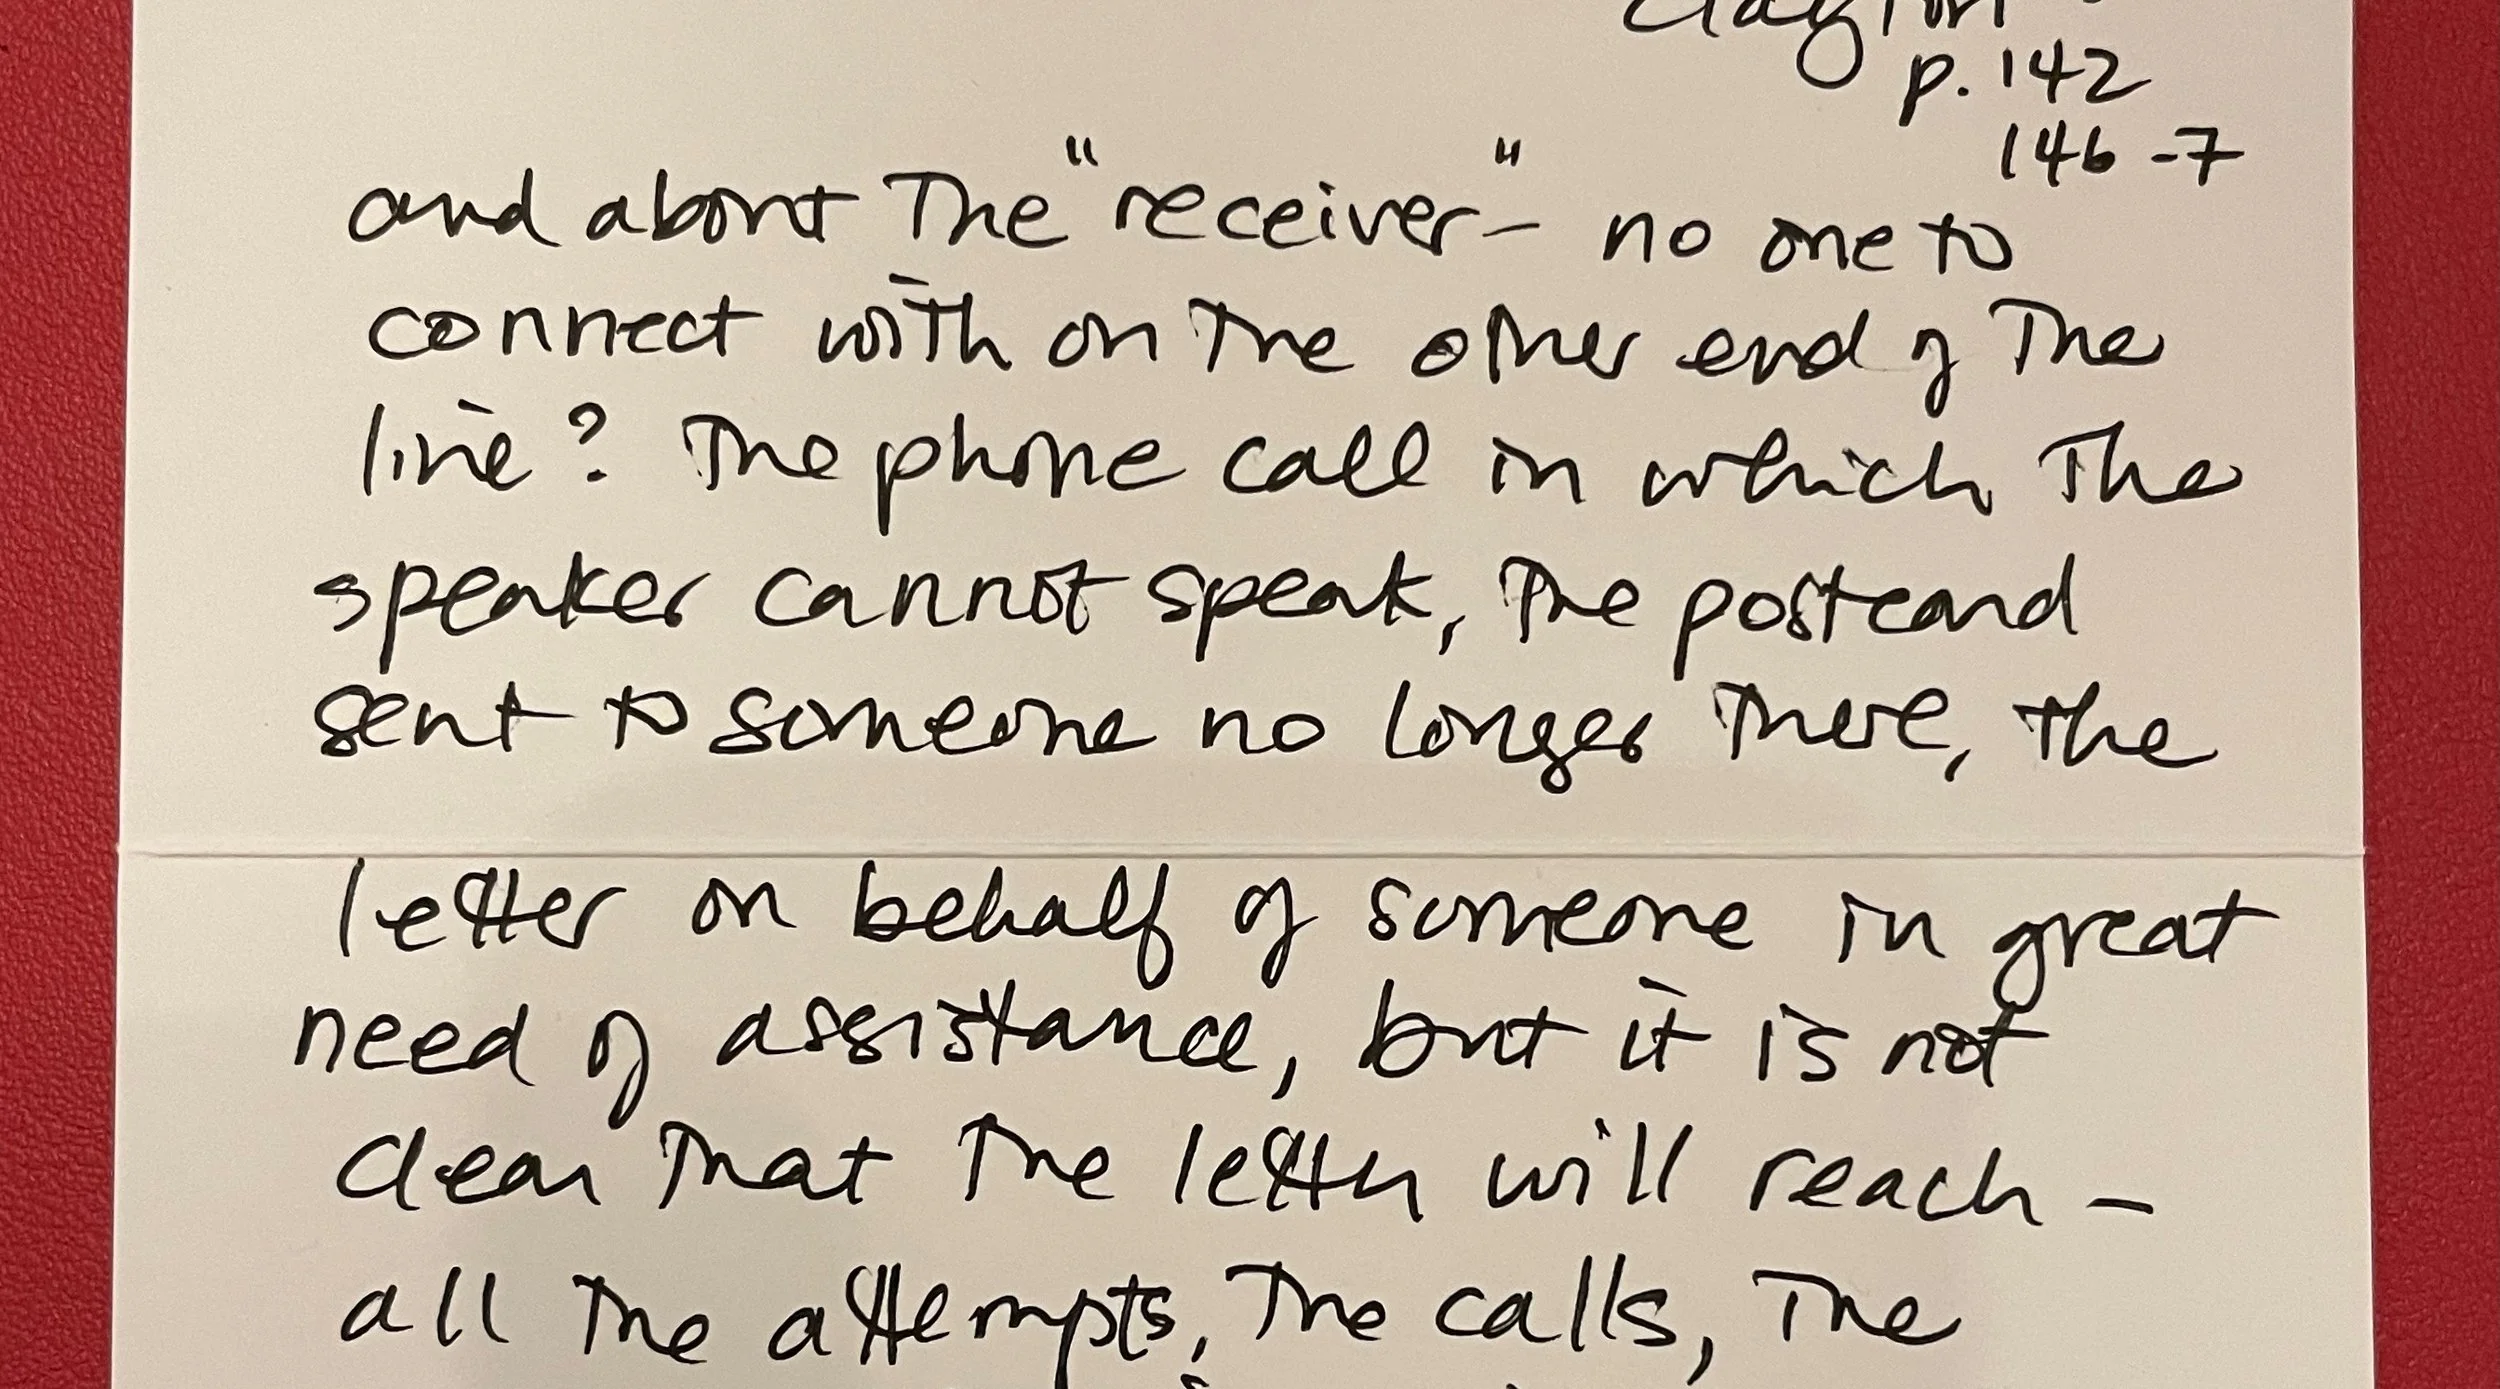 Clayton
p. 142
146-7
and about the "receiver" - no one to
connect with on the other end of the
line? The phone call in which the
speaker cannot speak, the postcard
sent to someone no longer there, the
letter on behalf of someone in great
need of assistance, but it is not
clear that the letter will reach -
all the attempts, the calls, the